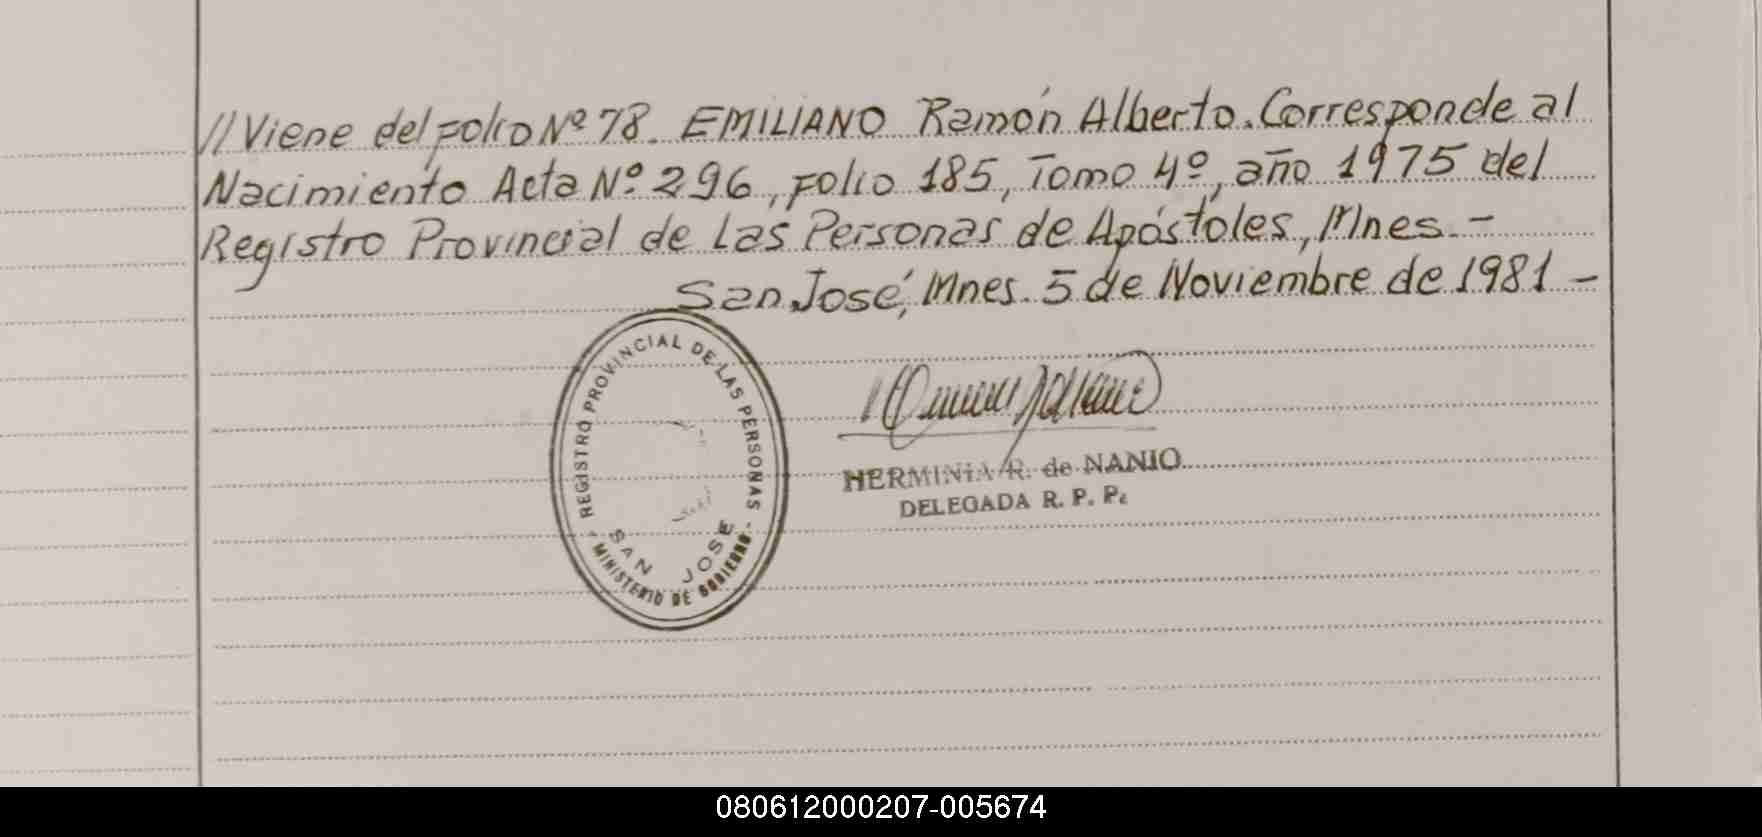 //Viene del folio Nº 78. EMILIANO Ramón Alberto. Corresponde al
Nacimiento Acta Nº 296, folio 185, Tomo 4º, año 1975 del
Registro Provincial de Las Personas de Apóstoles, Mnes. -
San José, Mnes. 5 de Noviembre de 1981 -
REGISTRO PROVINCIAL DE LAS PERSONAS
SAN JOSE
- MINISTERIO DE GOBIERNO -
HERMINIA R. de NANIO
DELEGADA R. P. P.
080612000207-005674